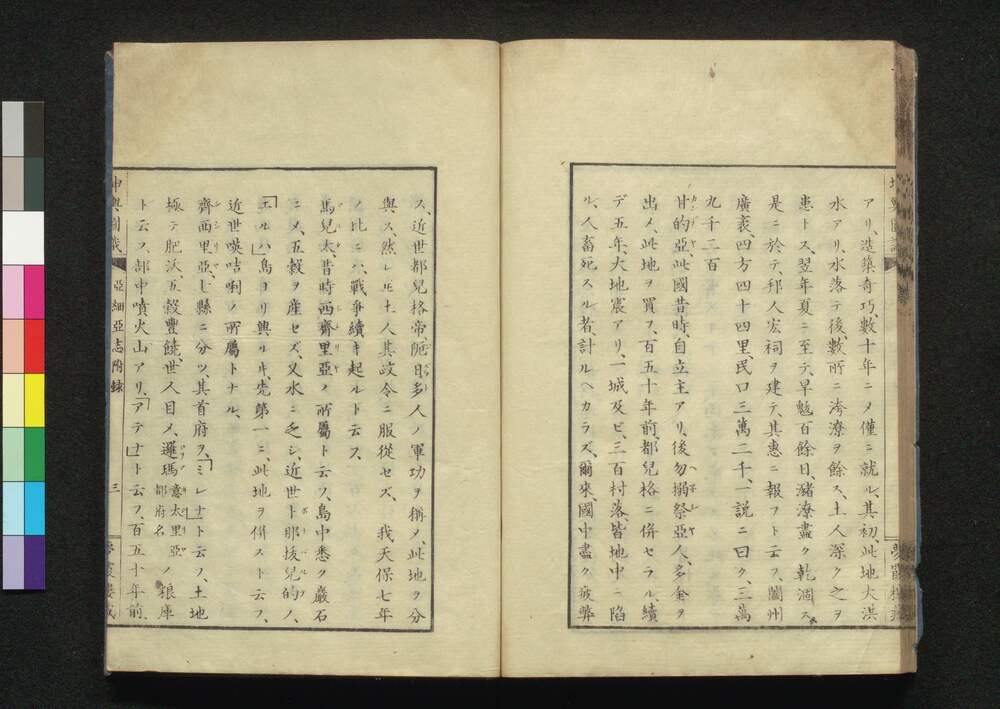 アリ、造築奇巧數十年ニ〆僅ニ就ル、其初、此地大洪
水アリ、水落テ後數所ニ洿潦ヲ餘ス、土人深ク之ヲ
患トス、翌年夏ニ至テ、旱魃百餘日、瀦潦盡ク乾涸ス
是ニ於テ、邦人宏祠ヲ建テ、其惠ニ報フト云フ、闔州
廣袤、四方四十四里民口三萬二千、一說ニ曰ク、三萬
九千二百
甘的亞、此國昔時、自立主アリ、後勿搦祭亞人、多金ヲ
出〆、此地ヲ買フ、百五十年前、都兒格ニ併セラル、續
デ五年、大地震アリ、一城及ビ、三百村落、皆地中ニ陷
ル、人畜死スル者、計ルヘカラズ、爾來、國中盡ク疲弊
ス、近世都兒格帝陁日多人ノ軍功ヲ稱〆、此地ヲ分
與ス、然レ𪜈土人其政令ニ服從セズ、我天保七年
ノ比ニハ、戰爭續キ起ルト云フ
馬兒太、昔時西齊里亞ノ所屬ト云フ、島中悉ク巖石
ニ〆、五穀ヲ産セズ、又水ニ乏シ、近世ト那抜兒的ノ、
「エルハ」島ヨリ興ルヰ、先第一ニ、此地ヲ併スト云フ、
近世嘆咭唎ノ所屬トナル、
齊西里亞、七縣ニ分ツ、其首府ヲ、「ミレナ」ト云フ、土地
極テ肥沃、五穀豐饒、世人目〆、邏瑪意太里亞都府名ノ粮庫
ト云フ、部中噴火山アリ、「アテナ」ト云フ、百五十年前、
坤輿圖識
亞細亞志附録
三